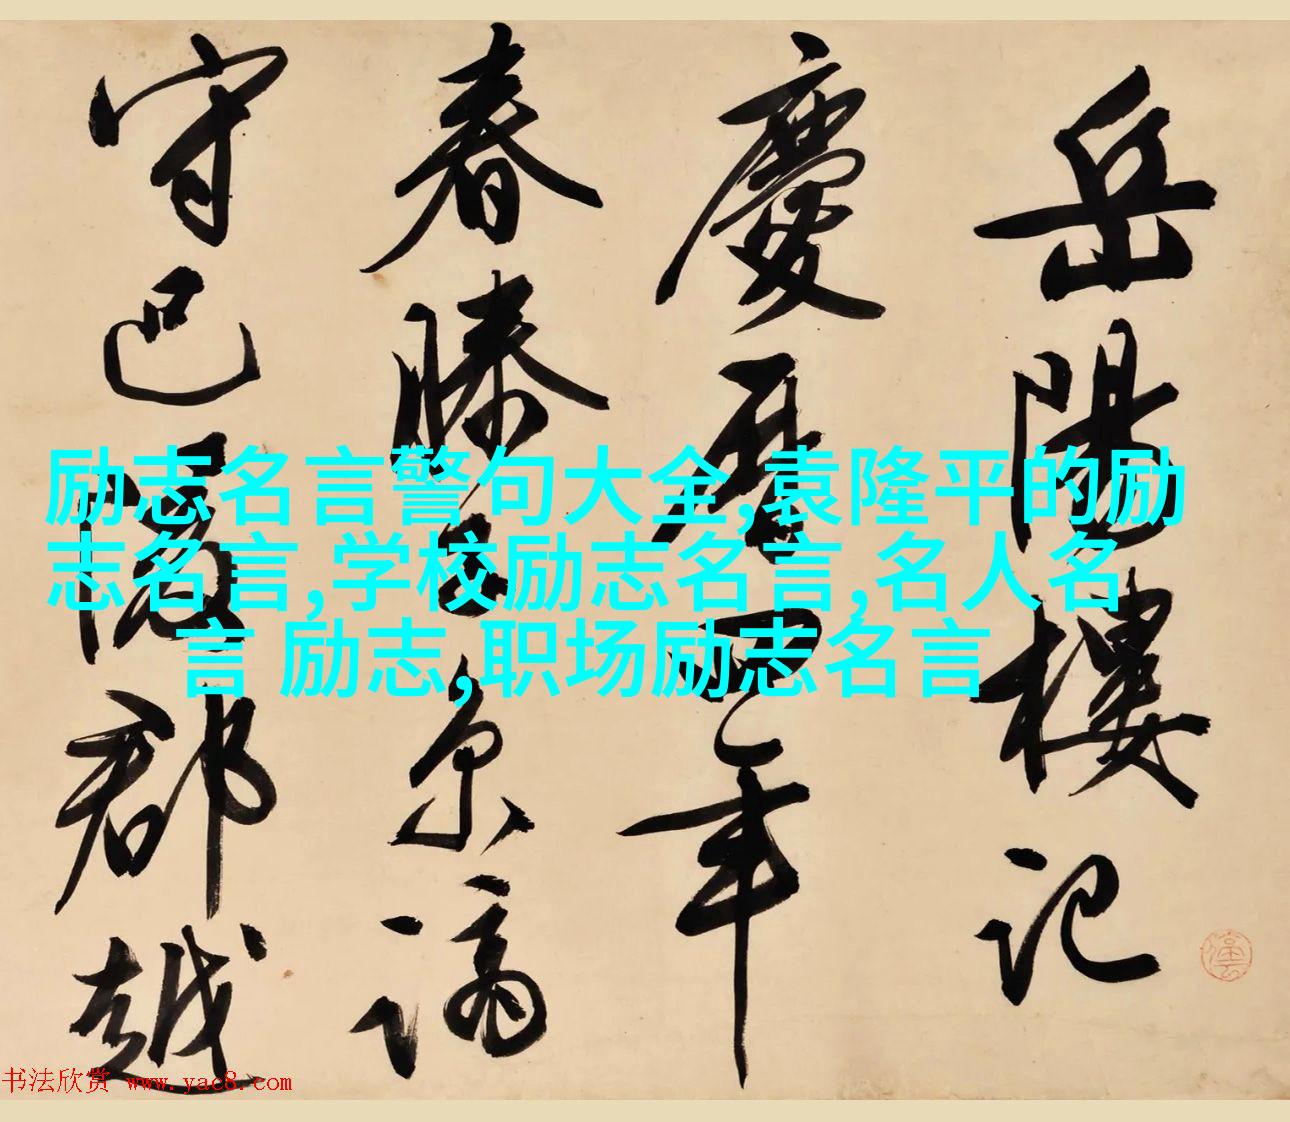 岳陽樓記
慶曆四年
春滕子京謫
守巴陵郡越
励志名言警句大全,袁隆平的励
志名言,学校励志名言,名人名
言 励志,职场励志名言
书法欣赏 www.yac8.com